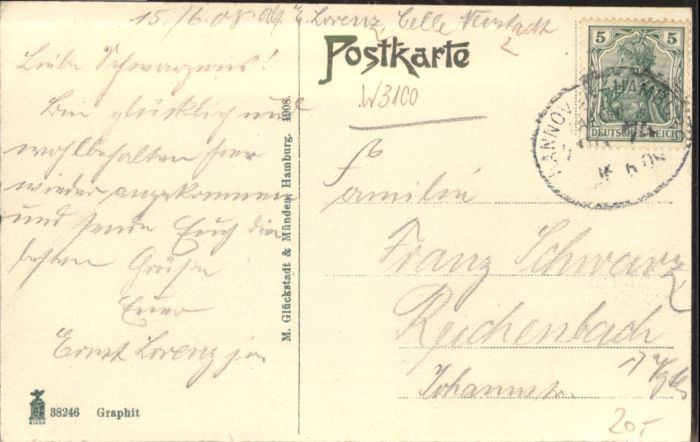 15./6.08 Abs. E. Lorenz, Celle Neustadt
2
Postkarte
W3100
Liebe Schwarzens!
Bin glücklich und
wohlbehalten hier
wieder angekommen
und sende Euch die
besten Grüße
Euer
Ernst Lorenz jr.
M. Glückstadt & Münden, Hamburg. 1908.
5 5
DEUTSCHES REICH
HANNOV HAMB
6 08
Familie
Franz Schwarz
Reichenbach
i/V
Johannisstr
20.-
38246 Graphit